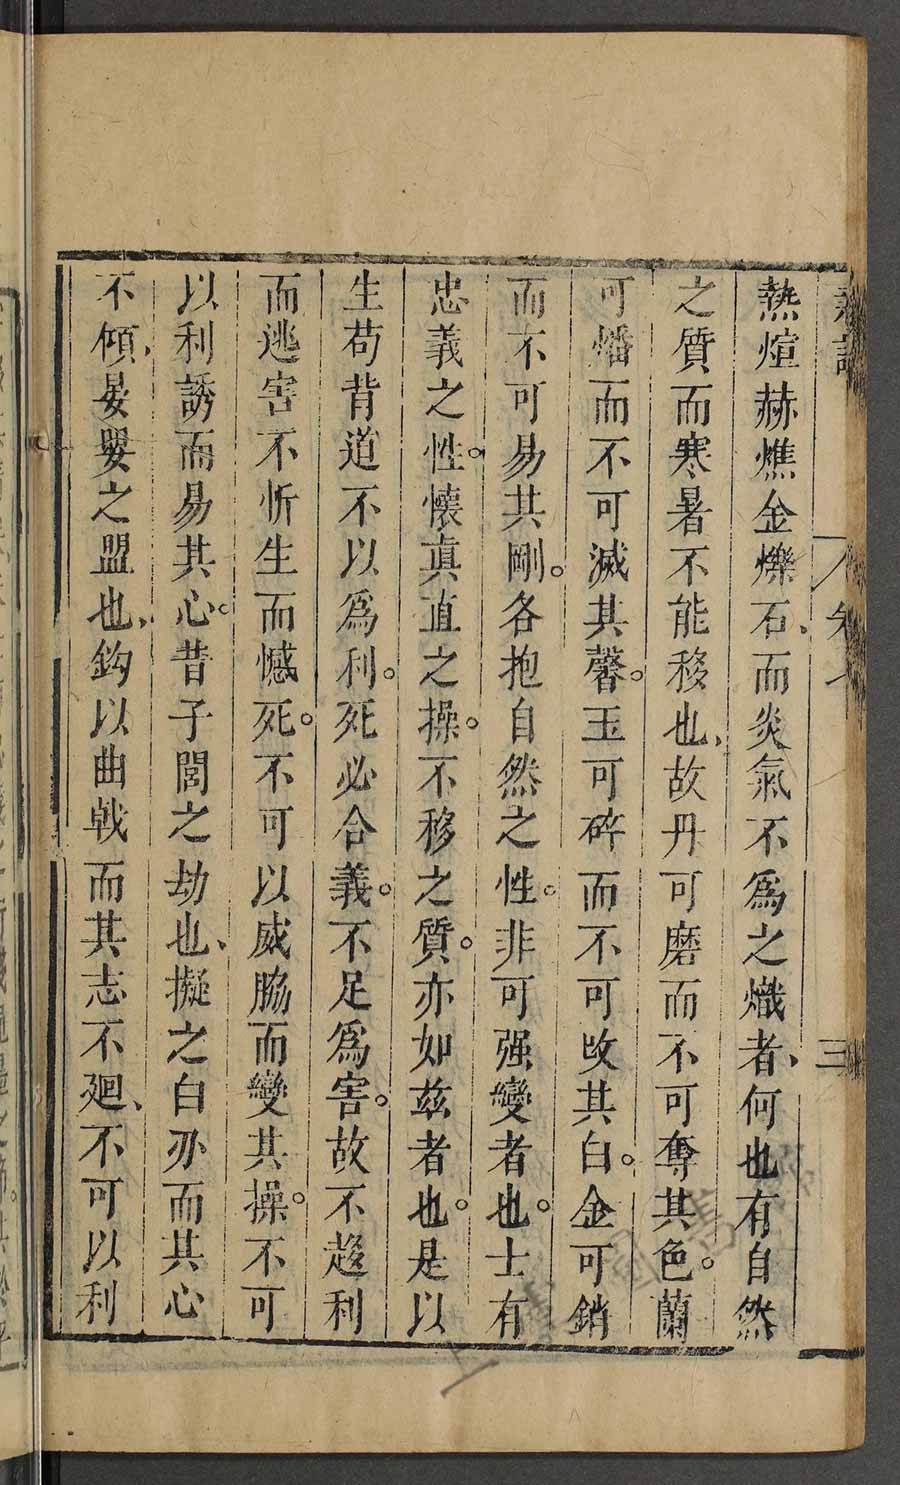 熱煊赫燋金爍石、而炎氣不爲之熾者、何也有自然
之質而寒暑不能移也、故丹可磨而不可奪其色。蘭
可燔而不可滅其馨。玉可碎而不可改其白。金可銷
而不可易其剛。各抱自然之性。非可强變者也。士有
忠義之性。懷眞直之操。不移之質。亦如茲者也。是以
生苟背道不以爲利。死必合義。不足爲害。故不趍利
而逃害不忻生而憾死。不可以威脇而變其操。不可
以利誘而易其心。昔子閭之劫也、擬之白刃而其心
不傾、晏嬰之盟也、鈎以曲戟而其志不廻、不可以利